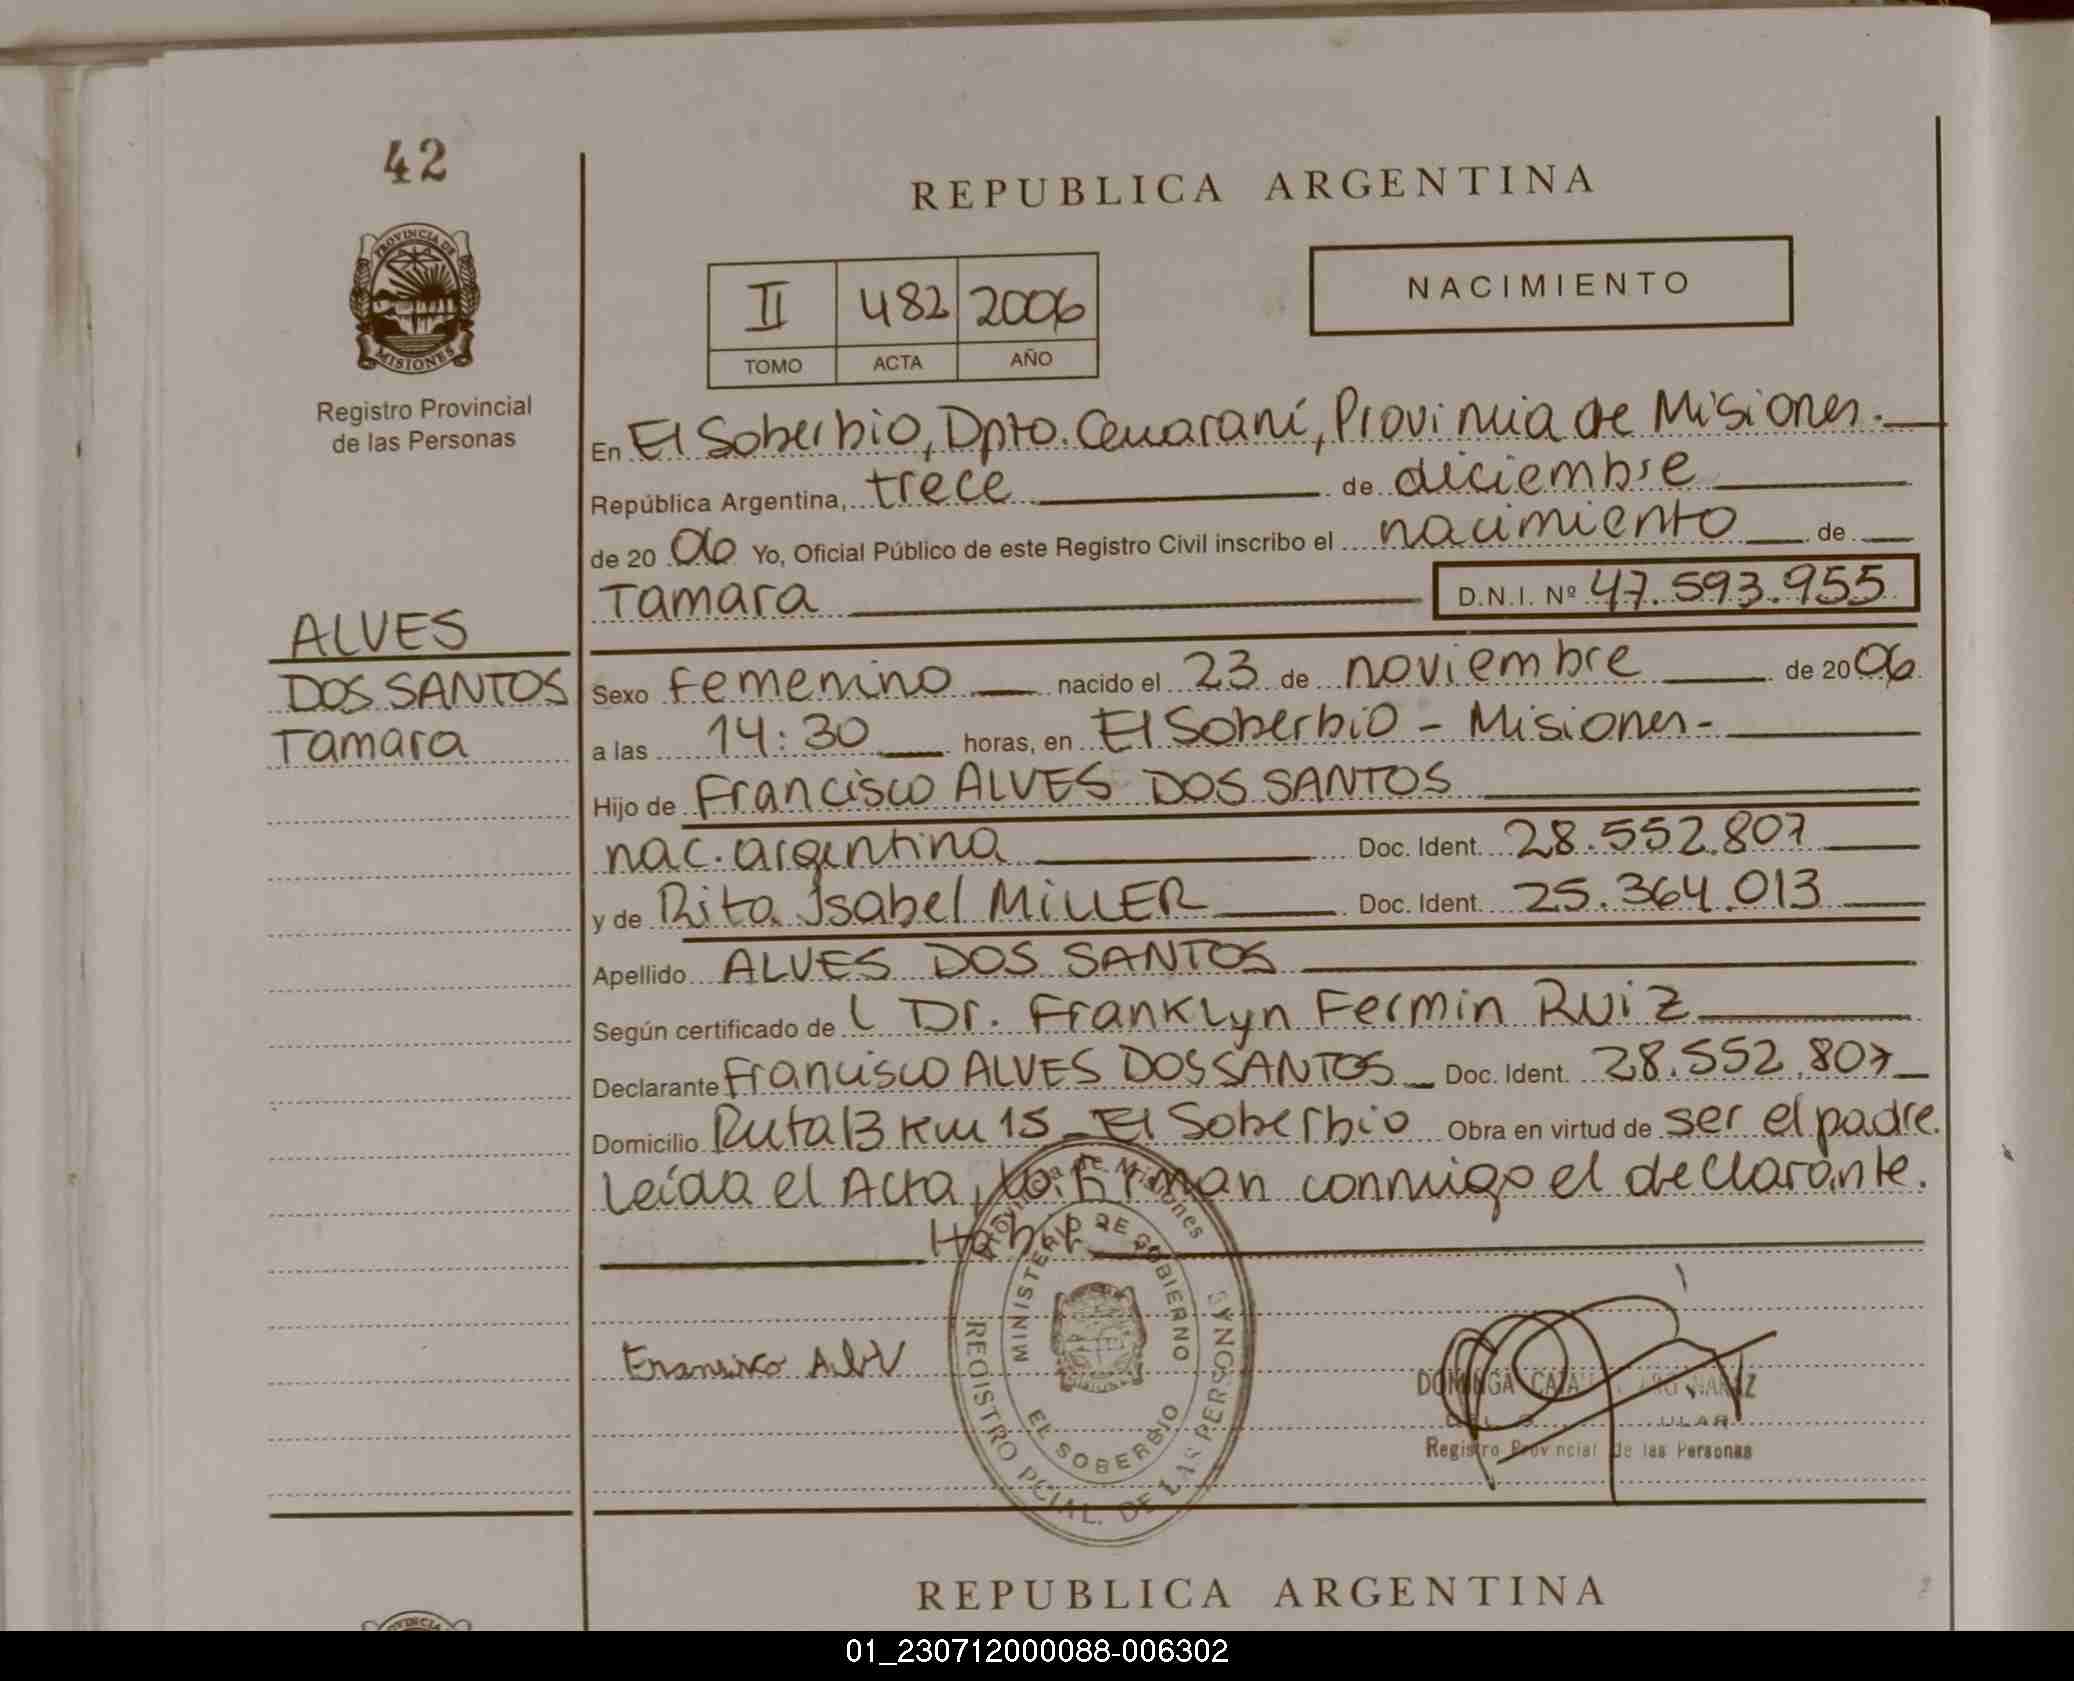 42
PROVINCIA DE
MISIONES
Registro Provincial
de las Personas
REPUBLICA ARGENTINA
II 482 2006
TOMO ACTA AÑO
NACIMIENTO
En El Soberbio, Dpto. Guaraní, Provincia de Misiones.
República Argentina, trece de diciembre
de 20 06 Yo, Oficial Público de este Registro Civil inscribo el nacimiento de
Tamara D.N.I. Nº 47.593.955
ALVES
DOS SANTOS
Tamara
Sexo femenino nacido el 23 de noviembre de 20 06
a las 14:30 horas, en El Soberbio - Misiones -
Hijo de Francisco ALVES DOS SANTOS
nac. argentina Doc. Ident. 28.552.807
y de Rita Isabel MILLER Doc. Ident. 25.364.013
Apellido ALVES DOS SANTOS
Según certificado de l Dr. Franklyn Fermin Ruiz
Declarante Francisco ALVES DOS SANTOS Doc. Ident. 28.552.807
Domicilio Ruta 13 Km 15 El Soberbio Obra en virtud de ser el padre.
Leída el Acta, la firman conmigo el declarante.
Provincia de Misiones
MINISTERIO DE GOBIERNO
EL SOBERBIO
REGISTRO PCIAL. DE LAS PERSONAS
Registro Provincial de las Personas
REPUBLICA ARGENTINA
01_230712000088-006302